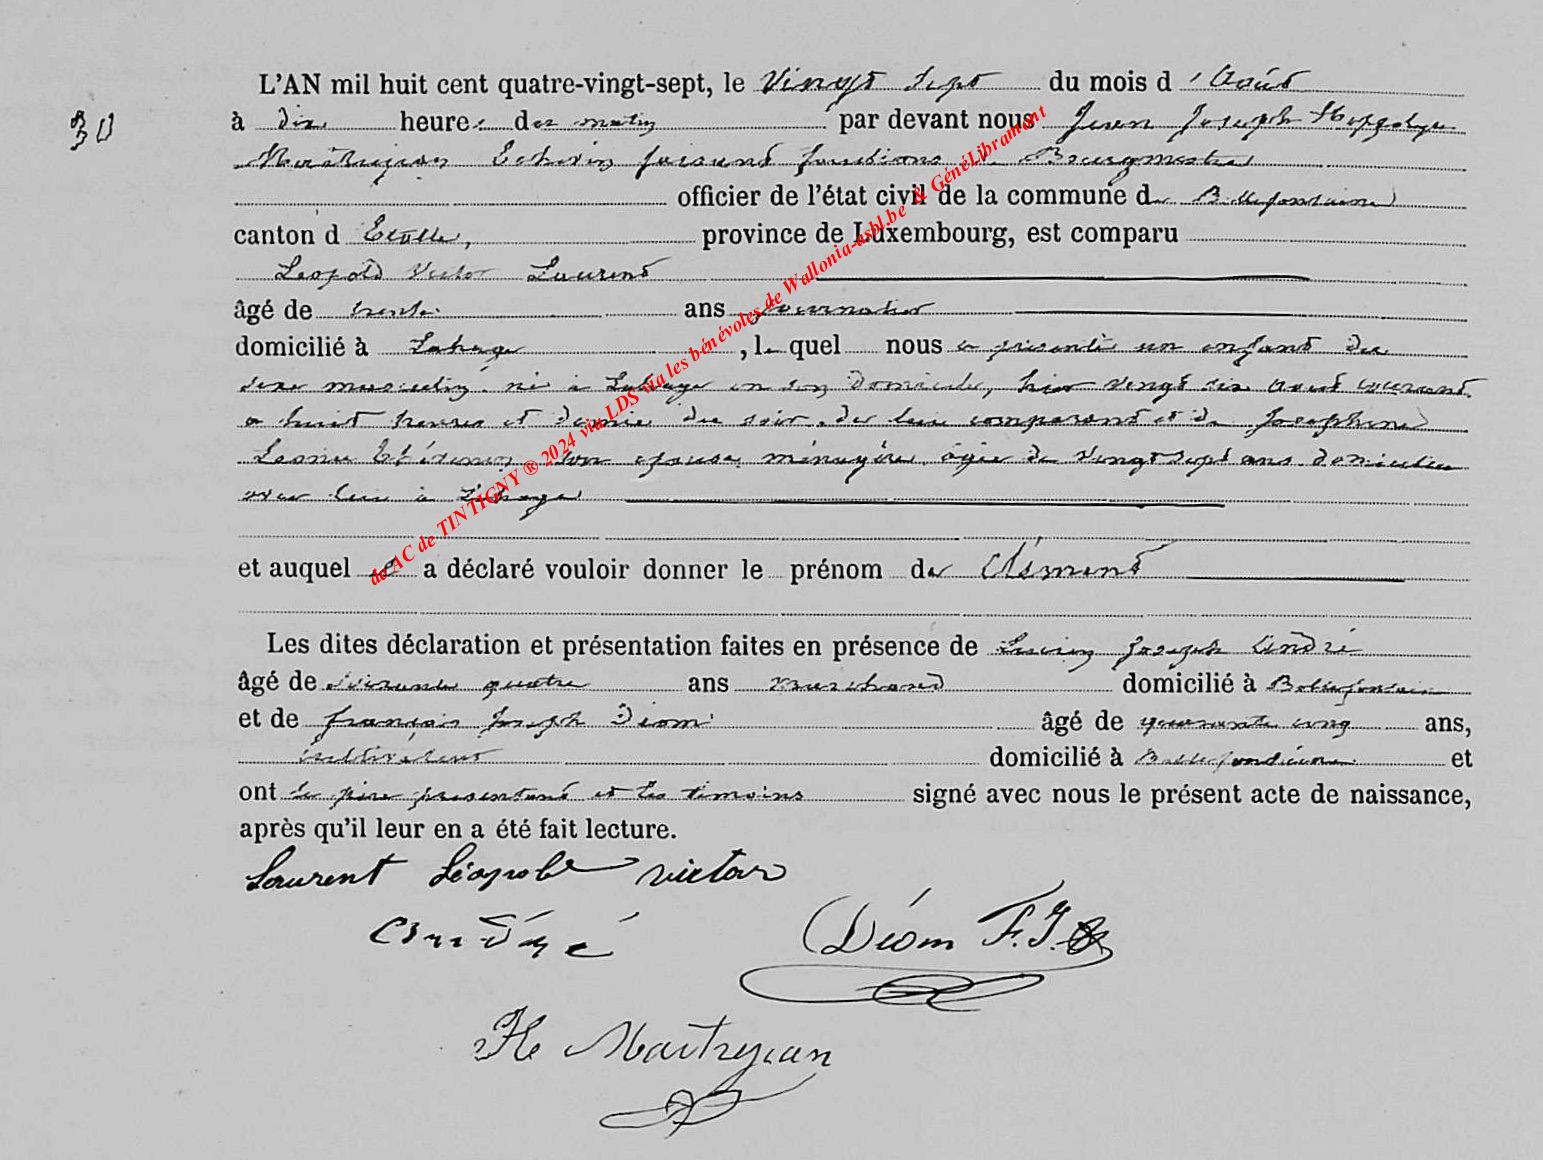 30
L'AN mil huit cent quatre-vingt-sept, le Vingt Sept du mois d'Août
à dix heures du matin par devant nous Jean Joseph Hippolyte
Maitrejean Echevin faisant fonctions de Bourgmestre
officier de l'état civil de la commune de Bellefontaine
canton d'Etalle, province de Luxembourg, est comparu
Léopold Victor Laurent
âgé de trente ans journalier
domicilié à Lahage, lequel nous a présenté un enfant du
sexe masculin né à Lahage en son domicile, hier vingt six août courant
à huit heures et demie du soir, de lui comparant et de Joséphine
Léonie son épouse, ménagère, âgée de vingt sept ans domiciliée
avec lui à Lahage
et auquel il a déclaré vouloir donner le prénom de Clément
Les dites déclaration et présentation faites en présence de Lucien Joseph André
âgé de quatre ans marchand domicilié à Bellefontaine
et de françois Joseph Déom âgé de quarante cinq ans,
cultivateur domicilié à Bellefontaine et
ont le père présentant et les témoins signé avec nous le présent acte de naissance,
après qu'il leur en a été fait lecture.
Laurent Léopold victor
André Déom F.J.
He Maitrejean
de AC de TINTIGNY ® 2024 via LDS via les bénévoles de Wallonia-asbl.be & GénéLibramont